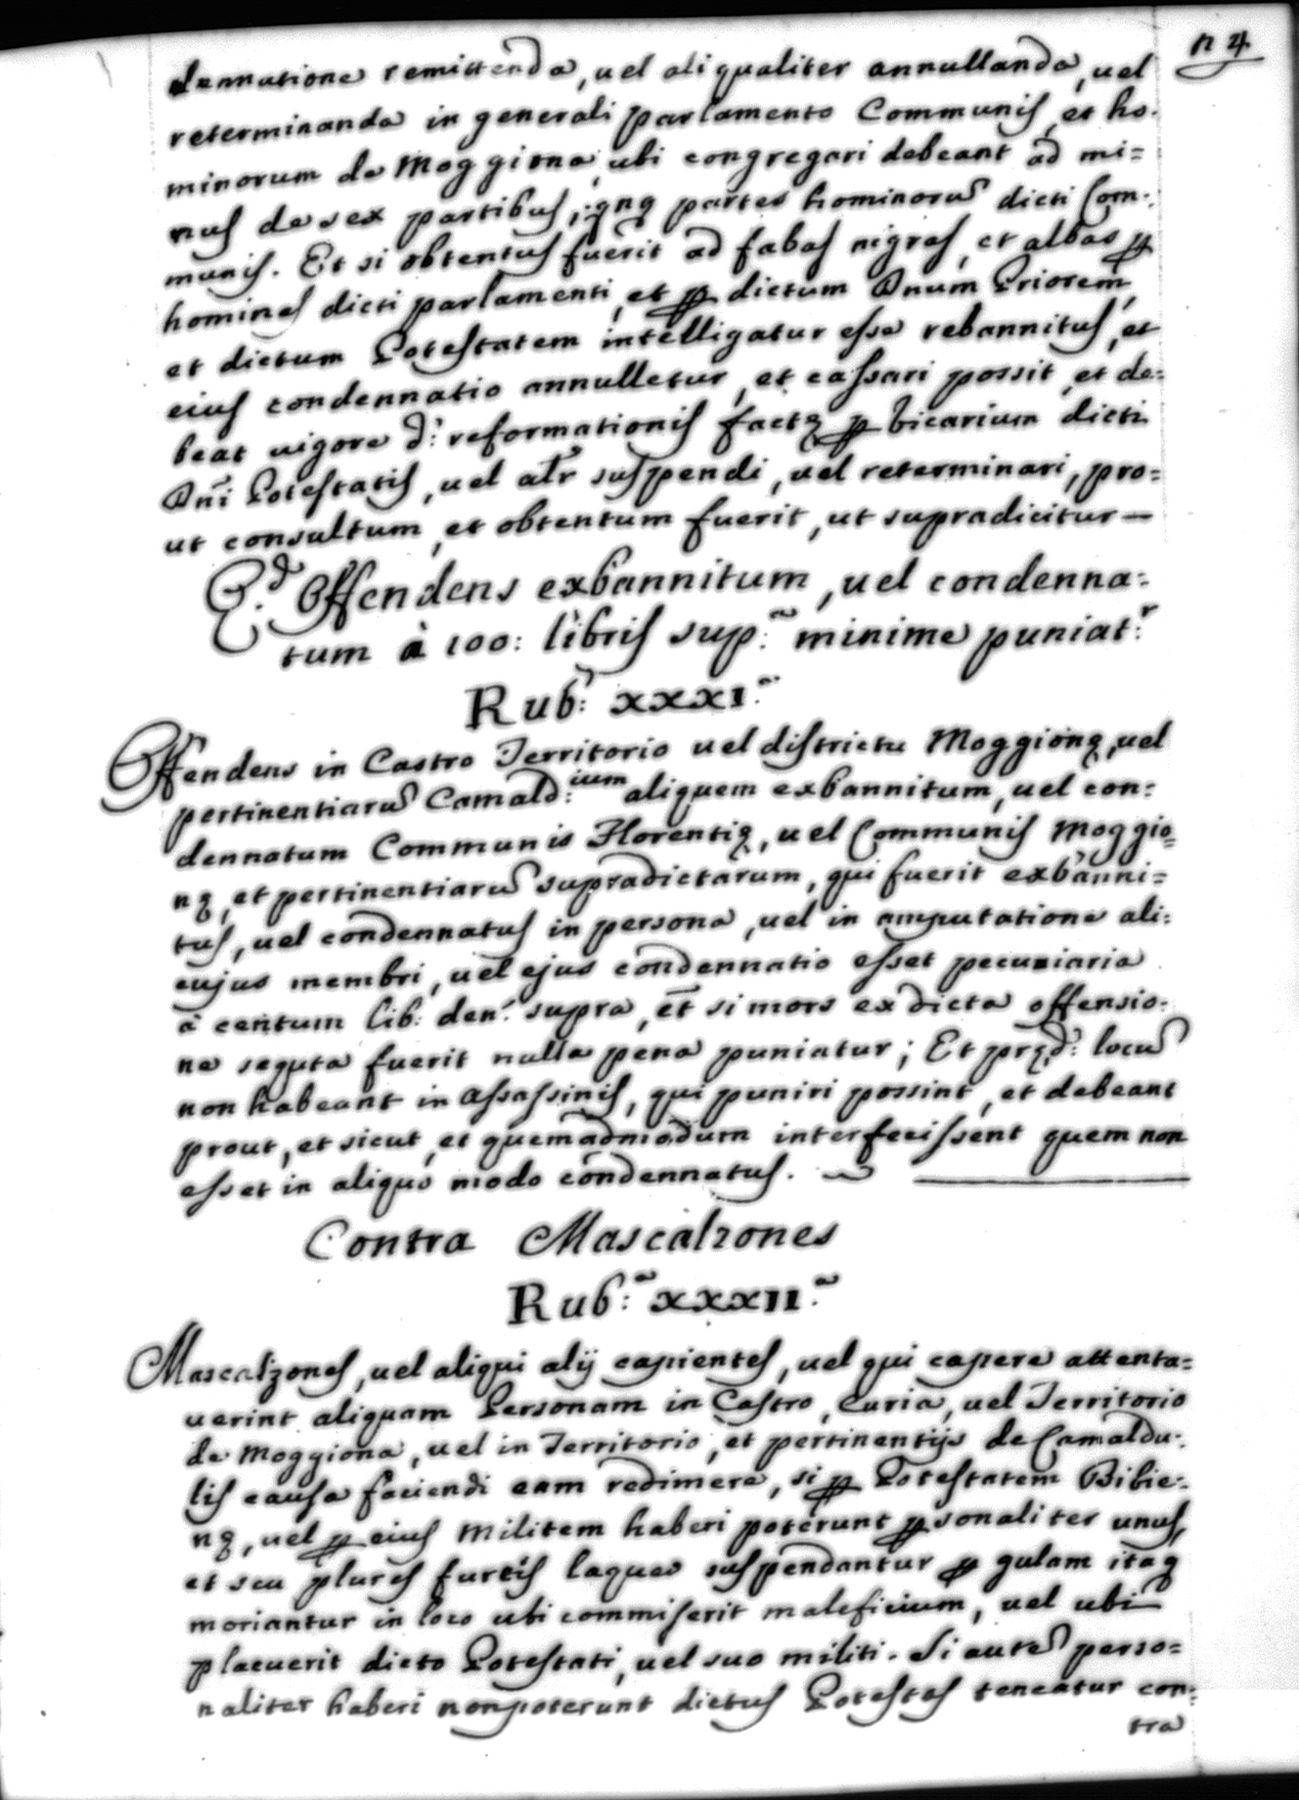 n 4
dennatione remittenda, uel aliqualiter annullanda, uel
reterminanda in generali parlamento Communis, et ho-
minorum de Moggiona, ubi congregari debeant ad mi=
nus de sex partibus, qnq partes hominorū dicti Com-
munis. Et si obtentus fuerit ad fabas nigras, et albas ꝑ
homines dicti parlamenti, et ꝑ dictum Dnum Priorem,
et dictum Potestatem intelligatur esse rebannitus, et
eius condennatio annulletur, et cassari possit, et de-
beat uigore d: reformationis factę ꝑ bicarium dicti
Dni Potestatis, uel alr suspendi, uel reterminari, pro-
ut consultum, et obtentum fuerit, ut supradicitur —
Q.d Offendens exbannitum, uel condenna-
tum à 100: libris sup:a minime puniat:r
Rub: XXXI.a
Offendens in Castro Territorio uel districtu Moggionę, uel
pertinentiarū Camald:ium aliquem exbannitum, uel con-
dennatum Communis Florentię, uel Communis Moggio=
nę, et pertinentiarū supradictarum, qui fuerit exbanni=
tus, uel condennatus in persona, uel in amputatione ali-
cujus membri, uel ejus condennatio esset pecuniaria
à centum lib: den: supra, et si mors ex dicta offensio-
ne seguta fuerit nulla pena puniatur; Et pręd: locū
non habeant in Assassinis, qui puniri possint, et debeant
prout, et sicut, et quemadmodum interfecissent quem non
esset in aliquo modo condennatus.
Contra Mascalzones
Rub:a XXXII.a
Mascalzones, uel aliqui alij capientes, uel qui capere attenta=
uerint aliquam Personam in Castro, Curia, uel Territorio
de Moggiona, uel in Territorio, et pertinentijs de Camaldu-
lis causa faciendi eam redimere, si ꝑ Potestatem Bibie-
nę, uel ꝑ eius Militem haberi poterunt ꝑsonaliter unus,
et seu plures furcis laqueo suspendantur ꝑ gulam itaq
moriantur in loco ubi commiserit maleficium, uel ubi
placuerit dicto Potestati, uel suo militi. Si autē perso=
naliter haberi non poterunt dictus Potestas teneatur con-
tra